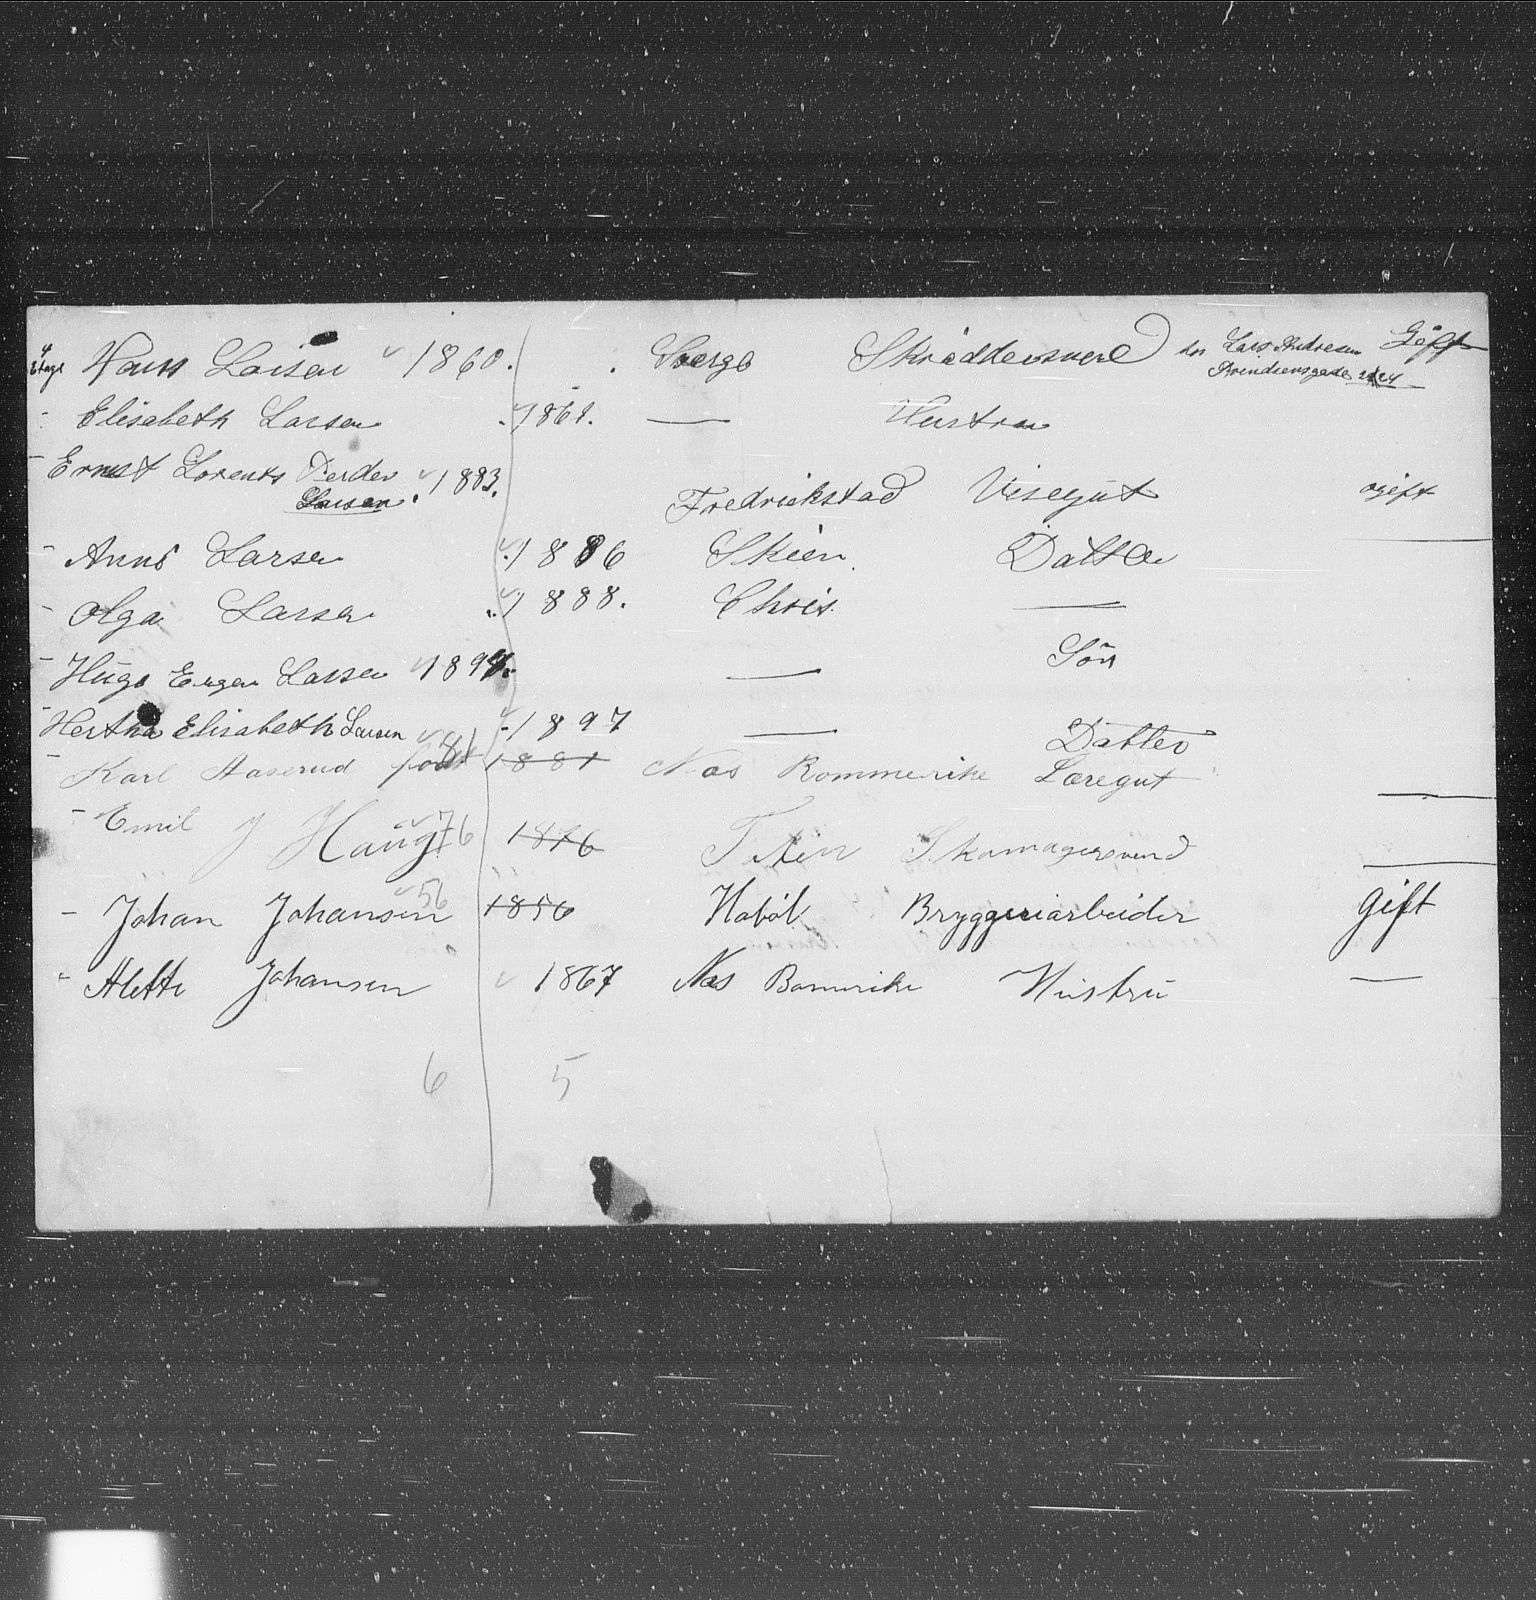 4 Etage Hans Larsen 1860. Sverge Skræddersvend hos Lars Andresen Gift
Arendsensgade 24
Elisabeth Larsen 1861. — Hustru
Ernst Lorents Larsen 1883. Fredrickstad Visegut ogift
Anna Larsen 1886 Skien Datter
Olga Larsen 1888. Chris. —
Hugo Eugen Larsen 1894. — Søn
Hertha Elisabeth Larsen 1897 — Datter
Karl Aaserud født 81 1881 Næs Rommerike Læregut —
Emil J Haug 76 1876 Skomagersvend —
Johan Johansen 56 1856 Haböl Bryggeriarbeider gift
Alette Johansen 1867 Næs Romerike Hustru —
6 5